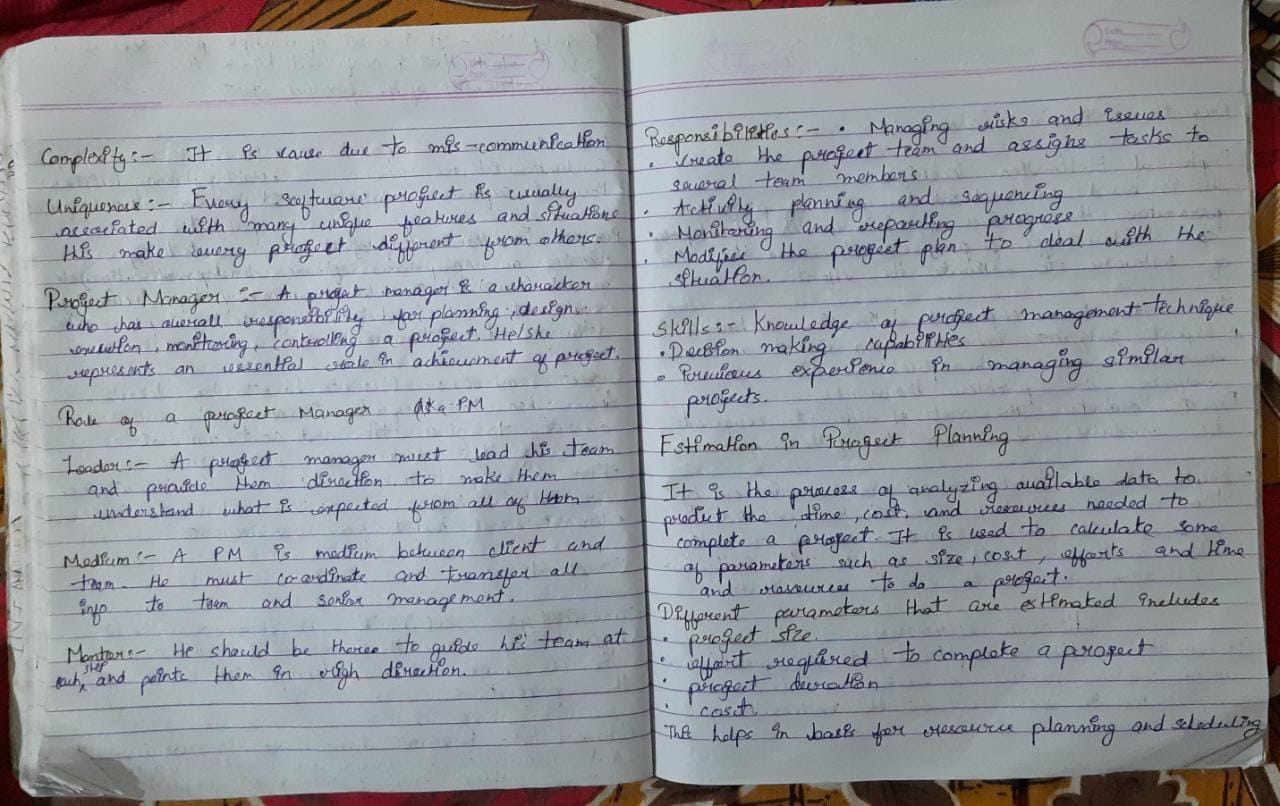 Complexity :- It is cause due to mis-communication
Uniqueness :- Every software project is usually
associated with many unique features and situations
this make every project different from others.
Project Manager :- A project manager is a character
who has overall responsibility for planning, design.
execution, monitoring, controlling a project. He/she
represents an essential role in achievement of project.
Role of a project Manager aka PM
Leader :- A project manager must lead his team
and provide them direction to make them
understand what is expected from all of them
Medium :- A PM is medium between client and
team. He must co-ordinate and transfer all
info to team and senior management.
Mentor :- He should be there to guide his team at
each step and points them in righ direction.
Date
Page
Responsibilities :- • Managing risks and issues
• Create the project team and assigns tasks to
several team members
• Activity planning and sequencing
• Monitoring and reporting progress
• Modifies the project plan to deal with the
situation.
Skills :- Knowledge of project management technique
• Decision making capabilities
• Previous experience in managing similar
projects.
Estimation in Project Planning
It is the process of analyzing available data to
predict the time, cost, and resources needed to
complete a project. It is used to calculate some
of parameters such as size, cost, efforts and time
and resources to do a project.
Different parameters that are estimated includes
• project size.
• effort required to complete a project
• project duration
• cost
This helps in basis for resource planning and scheduling